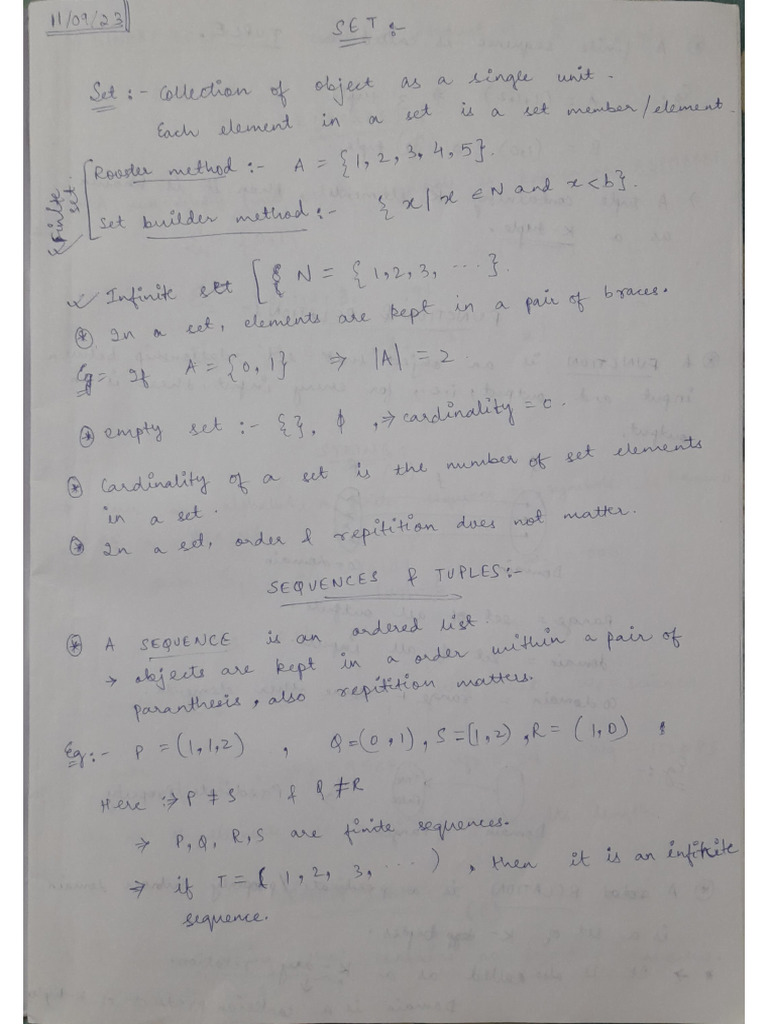 11/09/23
SET :-
Set :- Collection of object as a single unit.
Each element in a set is a set member/element.
Rooster method :- A = {1, 2, 3, 4, 5}.
Finite set.
Set builder method :- {x/x ∈ N and x<6}.
✓ Infinite set [ N = {1,2,3, ...}.
⊛ In a set, elements are kept in a pair of braces.
Eg= If A = {0,1} ⇒ |A| = 2.
⊛ empty set :- {}, ϕ, → cardinality = 0.
⊛ Cardinality of a set is the number of set elements
in a set.
⊛ In a set, order & repitition does not matter.
SEQUENCES & TUPLES:-
⊛ A SEQUENCE is an ordered list.
→ objects are kept in a order within a pair of
paranthesis, also repitition matters.
Eg:- P = (1,1,2) , Q=(0,1), S=(1,2), R = (1,0)
Here :⇒ P ≠ S & Q ≠ R
⇒ P, Q, R, S are finite sequences.
⇒ if T = ( 1, 2, 3, ... ) , then it is an infinite
sequence.